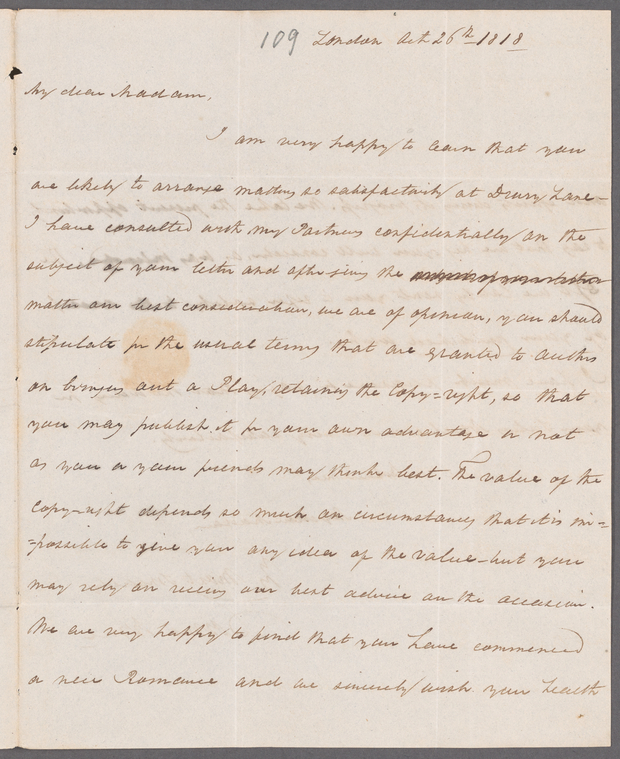 109 London Oct 26th 1818
My dear Madam,
I am very happy to learn that you
are likely to arrange matters so satisfactorily at Drury Lane-
I have consulted with my Partners confidentially on the
subject of your letter and after giving the
matter our best consideration, we are of opinion, you should
stipulate for the usual terms that are granted to authors
on bringing out a Play, retaining the Copy=right, so that
you may publish it for your own advantage or not
as you or your friends may think best. The value of the
Copy-right depends so much on circumstances that it is im=
=possible to give you any idea of the value-but you
may rely on receiving our best advice on the occasion.
We are very happy to find that you have commenced
a new Romance and we sincerely wish your health